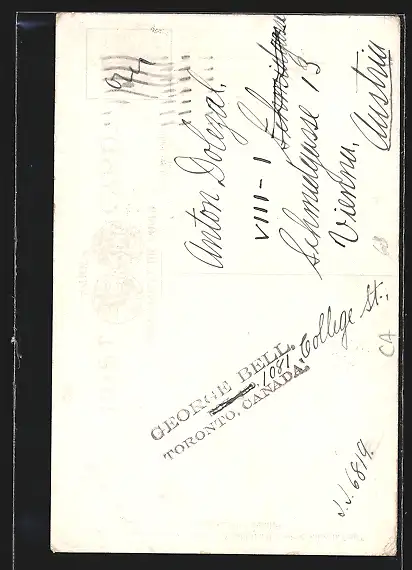 Anton Dolezal,
VIII-1
Schmidgasse 13
Vienna,
Austria
GEORGE BELL,
1081 College St.,
TORONTO, CANADA.
J.J. 6819.
CA